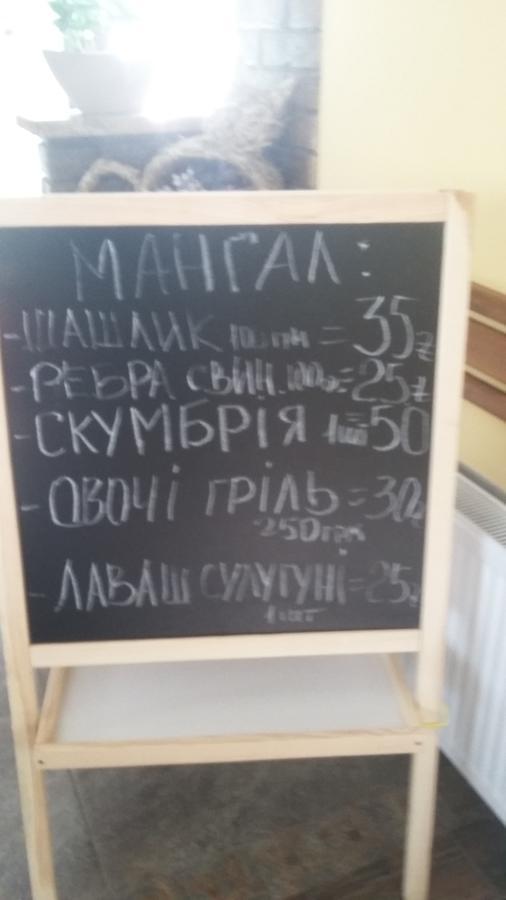 МАНГАЛ:
-ШАШЛИК 100гм = 35₴
-РЕБРА СВИН. 100г=25₴
-СКУМБРІЯ 1шт=50
-ОВОЧІ ГРІЛЬ=30₴
250грм
-ЛАВАШ СУЛУГУНІ=25₴
1шт